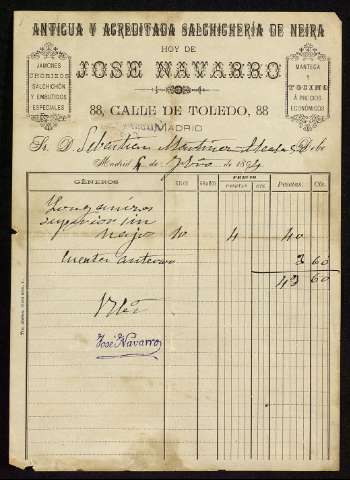 ANTIGUA Y ACREDITADA SALCHICHERÍA DE NEIRA
HOY DE
JOSE NAVARRO
JAMONES
CHORIZOS
SALCHICHÓN
Y EMBUTIDOS
ESPECIALES
MANTECA
Y
TOCINO
Á PRECIOS
ECONÓMICOS
88, CALLE DE TOLEDO, 88
MADRID
Sr. D. Sebastian Martinez Debe
Madrid 6 de de 1894
GÉNEROS KILOS GRAMOS PRECIO Pesetas Cts.
Pesetas Cts.
Longanizas
superior sin
10 4 40
Cuenta anterior 3 60
43 60
José Navarro